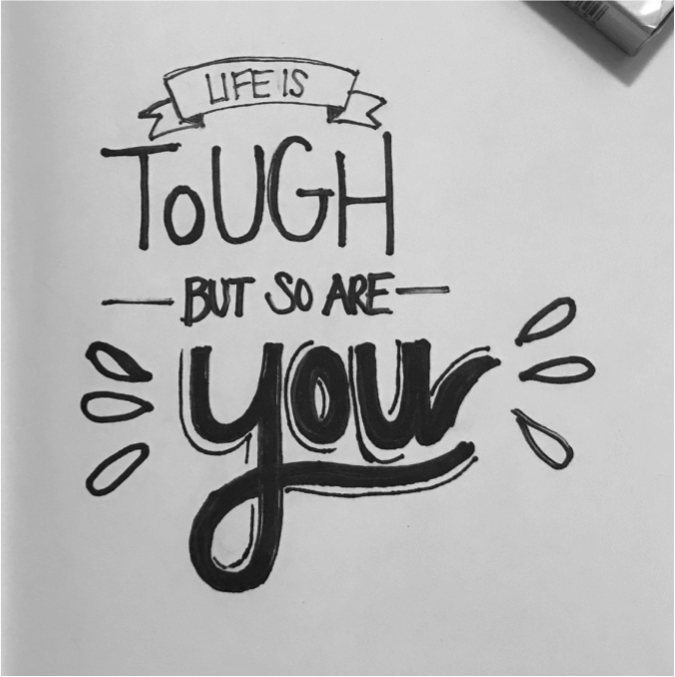 LIFE IS
ToUGH
BUT SO ARE
you